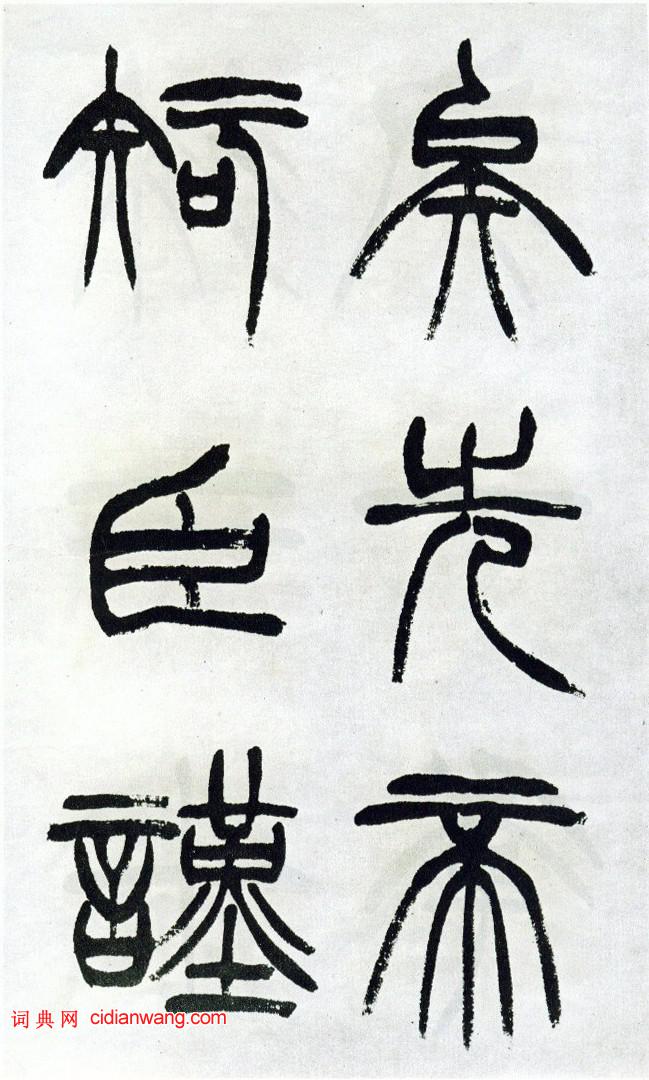 矣先帝
知臣謹
词典网 cidianwang.com